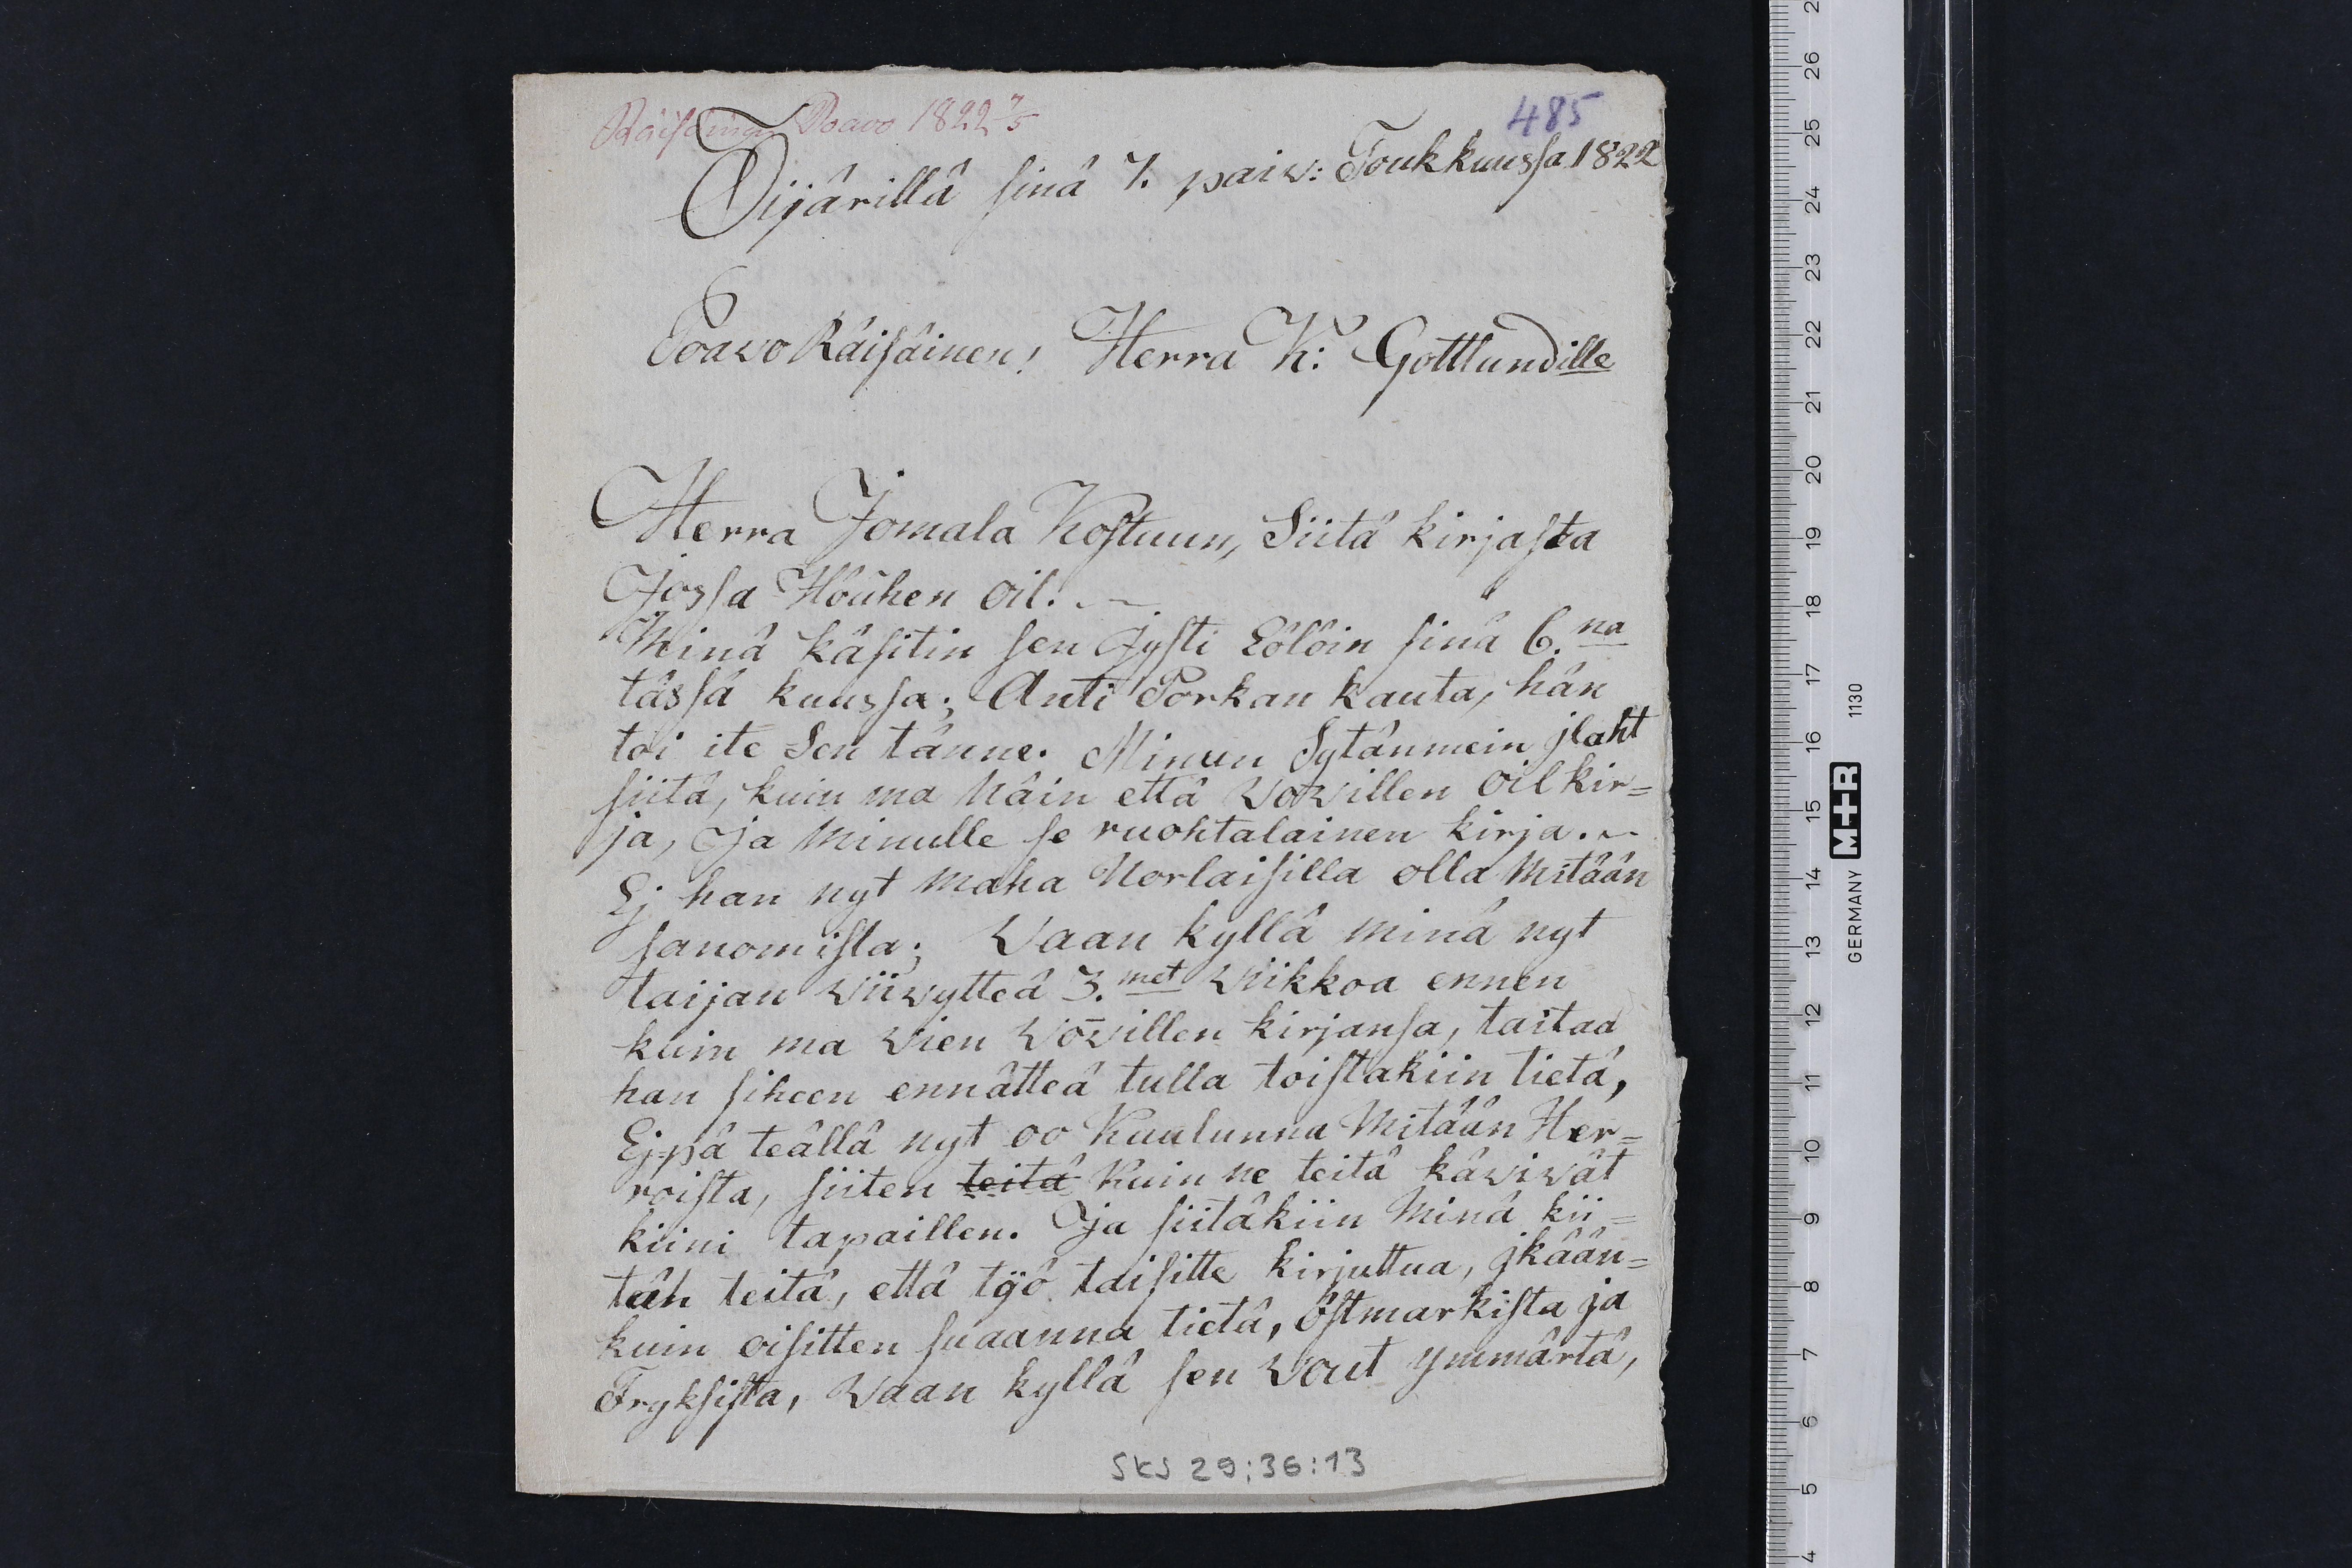 Räisäinen Poavo 1822 7/5
485
Öijärillä sinä 7. paiv: Toukkuussa 1822
Poavo Räisäinen! Herra K: Gottlundille
Herra Jomala Kostuun, Siitä kirjasta
Jossa Höühen oil.
Minä käsitin sen Jysti Eölöin sinä 6.na
tässä kuussa; Anti Porkan kauta, hän
toi ite Sen tänne. Minun Sytänmein jlaht
siitä, kuin ma Näin että Vovillen oil kir=
ja, Ja Minulle se ruohtalainen kirja.
Ej han nyt maha Norlaisilla olla Mitään
sanomista; Vaan kyllä minä nyt
taijan viivytteä 3.met Viikkoa ennen
kuin ma Vien Vovillen kirjansa, taitaa
han siheen ennätteä tulla toistakiin tietä,
Ej-pä teällä nyt oo Kuulunna Mitään Her=
roista, siiten teitä Kuin ne teitä kävivät
kiini tapaillen. Ja siitäkiin Minä kii=
tän teitä, että työ taisitte kirjuttua, jkään=
kuin oisitten suaanna tietä, Östmarkista ja
Fryksista, Vaan kyllä sen Vout ymmärtä,
SKS 29:36:13
4 5 6 7 8 9 10 11 12 13 14 15 16 17 18 19 20 21 22 23 24 25 26
GERMANY M+R 1130